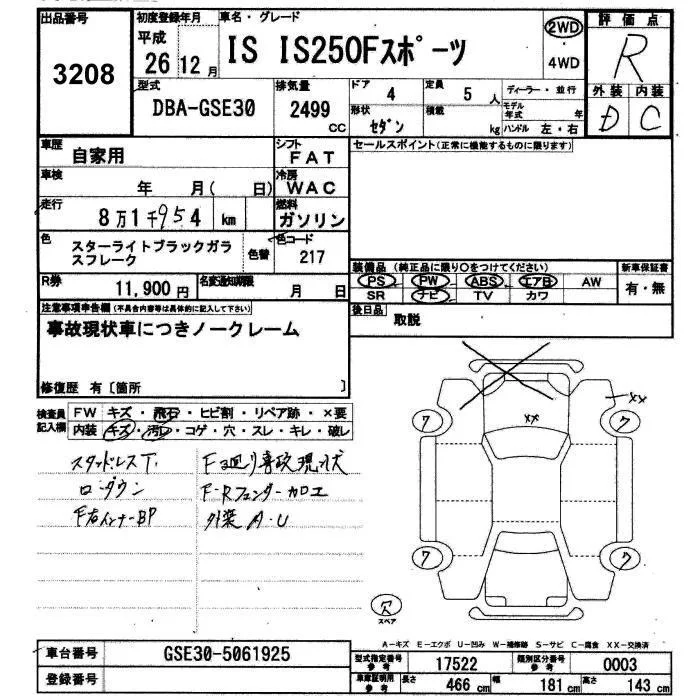 出品番号 初度登録年月 車名・グレード 評価点
3208 平成 26 12月 IS IS250Fスポーツ 2WD ・ 4WD R
型式 排気量 ドア 4 定員 5 人 ディーラー・並行 外装 内装
DBA-GSE30 2499 cc 形状 セダン 積載 kg モデル年式 年 ハンドル 左・右 D C
車歴 自家用 シフト FAT セールスポイント(正常に機能するものに限ります)
車検 年 月( 日) 冷房 WAC
走行 8万1千954 km 燃料 ガソリン
色 スターライトブラックガラスフレーク 色替 色コード 217
装備品 (純正品に限り○をつけてください) 新車保証書
R券 11,900円 名変通知期限 月 日 PS PW ABS エアB AW 有・無
SR ナビ TV カワ
注意事項申告欄(不具合内容等は具体的に記入して下さい) 後日品 取説
事故現状車につきノークレーム
修復歴 有〔箇所 〕
検査員記入欄 FW キズ・飛石・ヒビ割・リペア跡・×要
内装 キズ・汚レ・コゲ・穴・スレ・キレ・破レ
スタッドレスT. F廻り事故現状
ローダウン F・Rフェンダー加工
F右インナーBP 外装 A・U
××
××
ワ ワ
ワ ワ
欠
スペア
A-キズ E-エクボ U-凹み W-補修跡 S-サビ C-腐食 XX-交換済
車台番号 GSE30-5061925
登録番号
型式指定番号参考 17522 類別区分番号参考 0003
車庫証明用参考 長さ 466 cm 幅 181 cm 高さ 143 cm